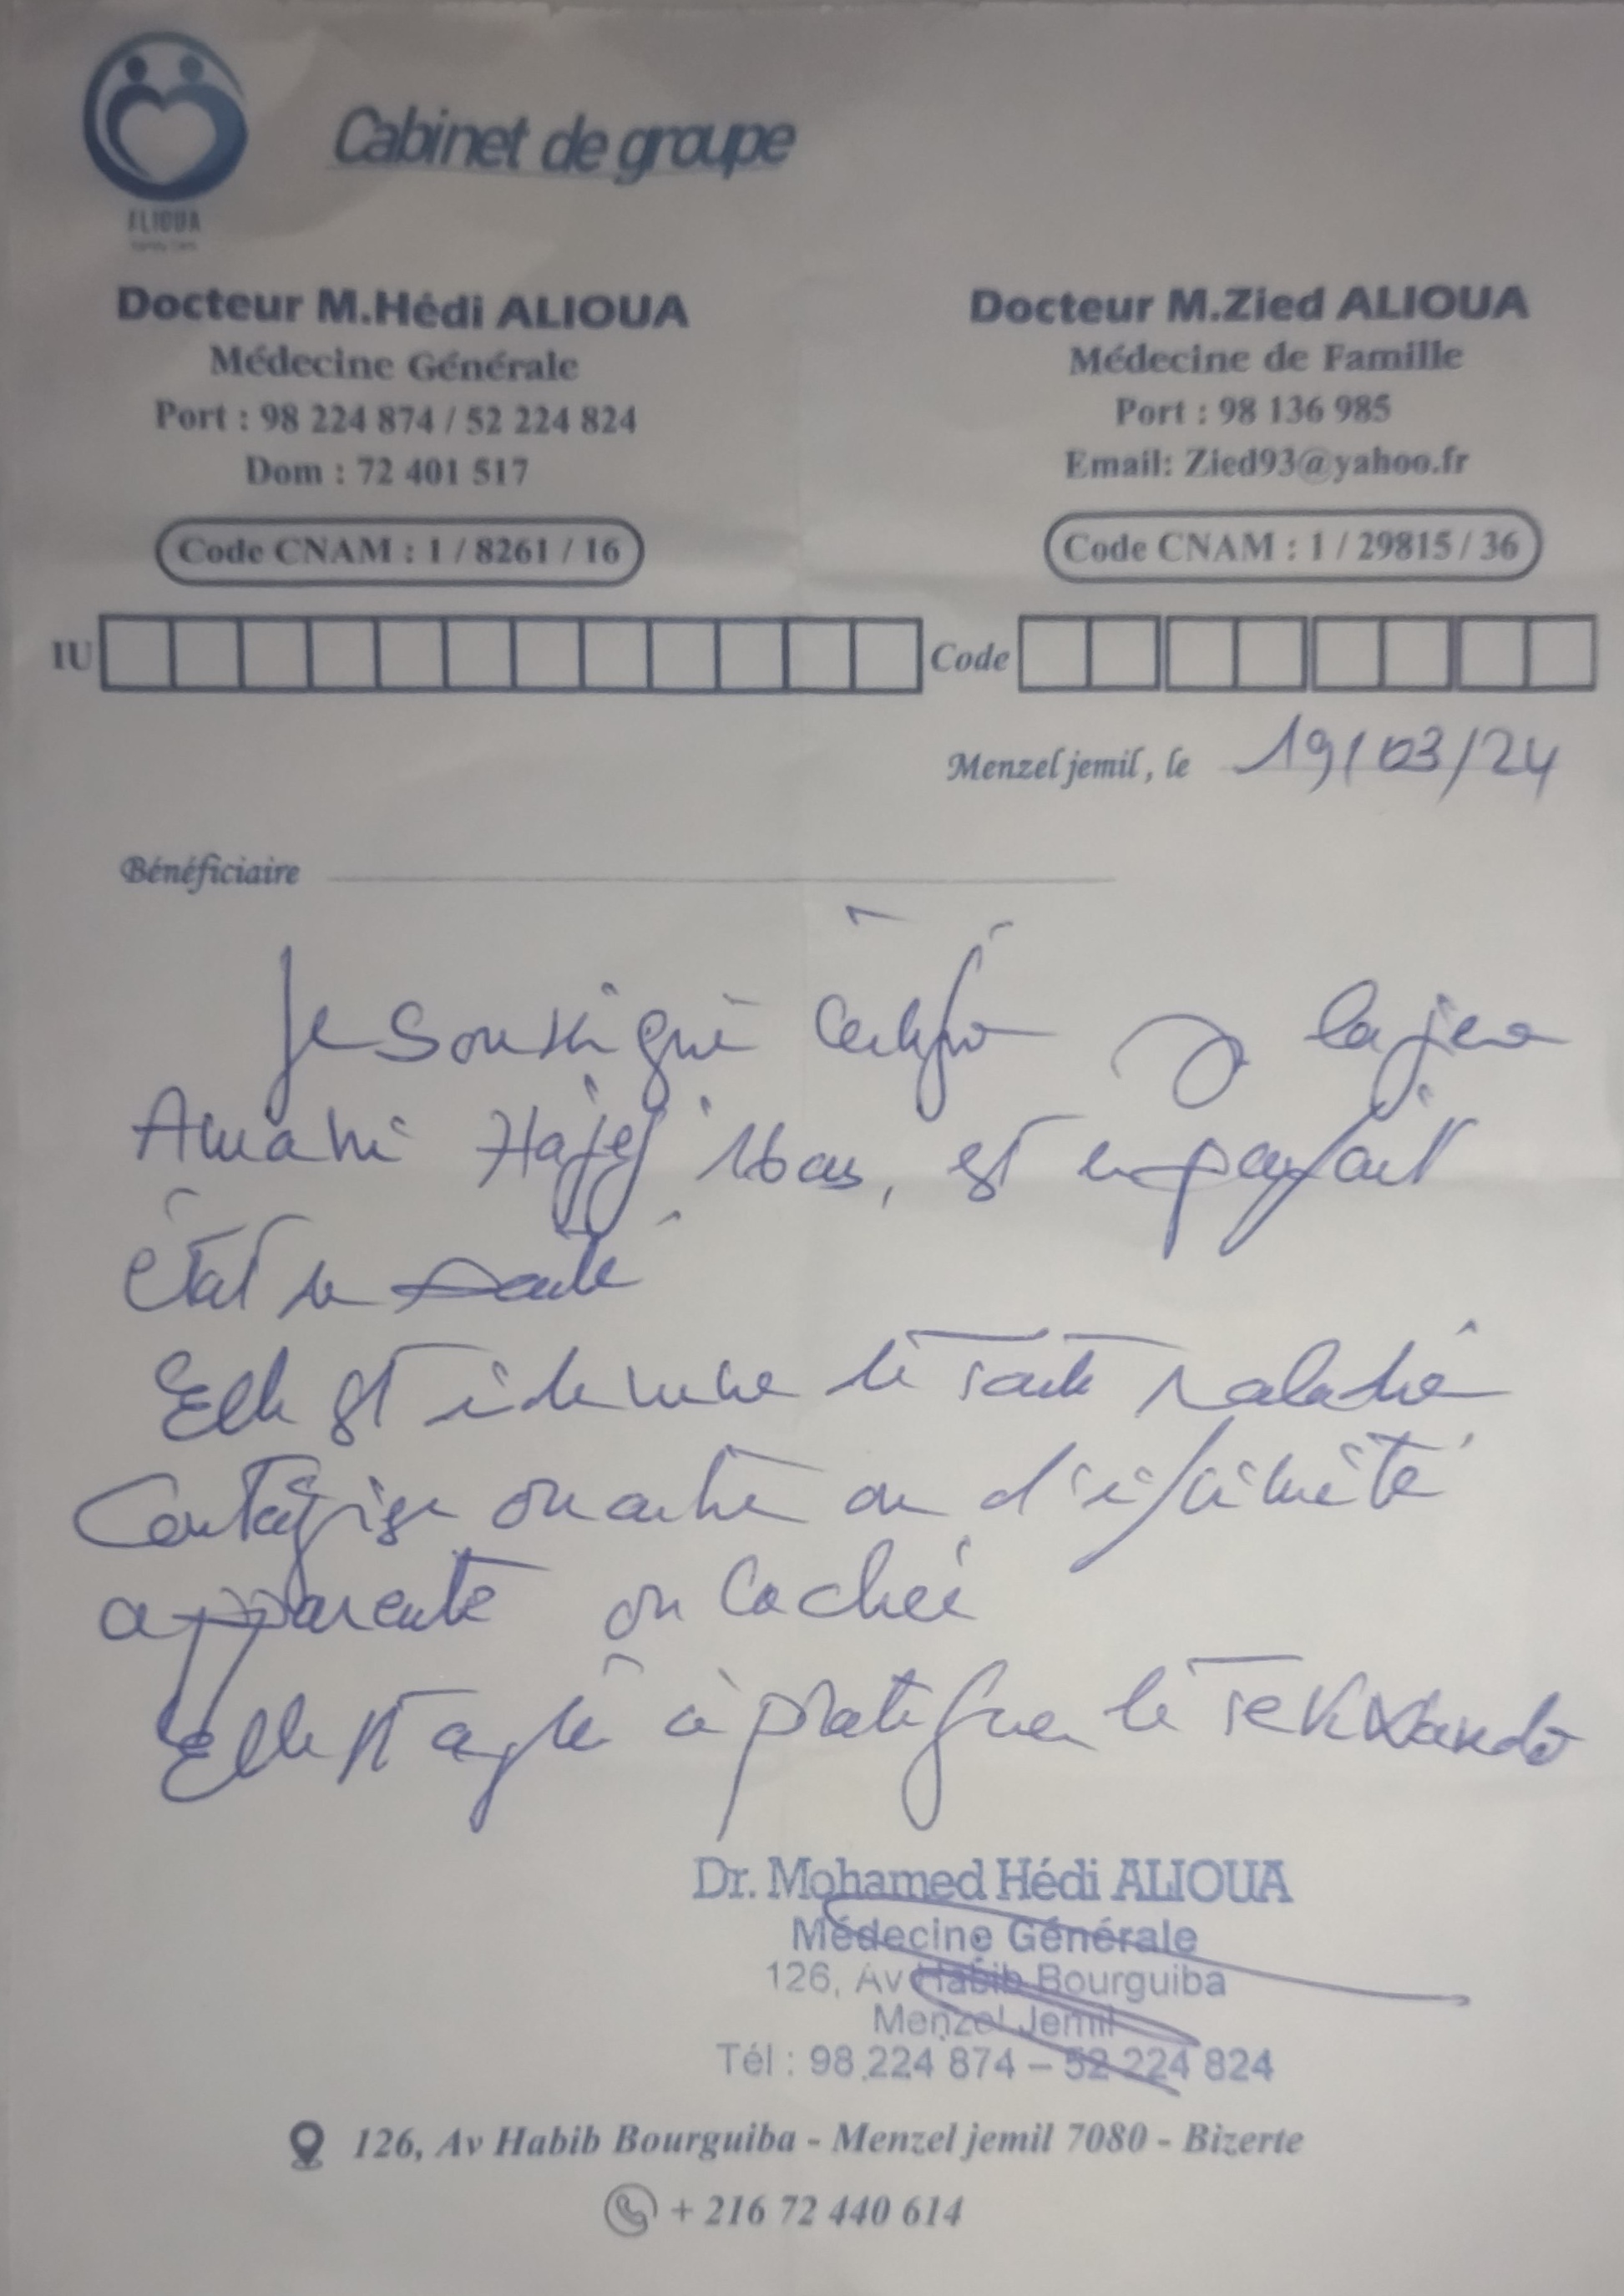 ALIOUA
Cabinet de groupe
Docteur M.Hédi ALIOUA
Médecine Générale
Port : 98 224 874 / 52 224 824
Dom : 72 401 517
Code CNAM : 1 / 8261 / 16
Docteur M.Zied ALIOUA
Médecine de Famille
Port : 98 136 985
Email: Zied93@yahoo.fr
Code CNAM : 1 / 29815 / 36
IU
Code
Menzel jemil , le 19/03/24
Bénéficiaire
Je soussigné certifie la jeune
Amani Hajej 16 ans, est en parfait
état de santé
Elle est indemne de toute maladie
contagieuse ou autre ou d'infirmité
apparente ou cachée
Elle est apte à pratiquer le
Dr. Mohamed Hédi ALIOUA
Médecine Générale
126, Av Habib Bourguiba
Menzel Jemil
Tél : 98 224 874 – 52 224 824
126, Av Habib Bourguiba - Menzel jemil 7080 - Bizerte
+ 216 72 440 614